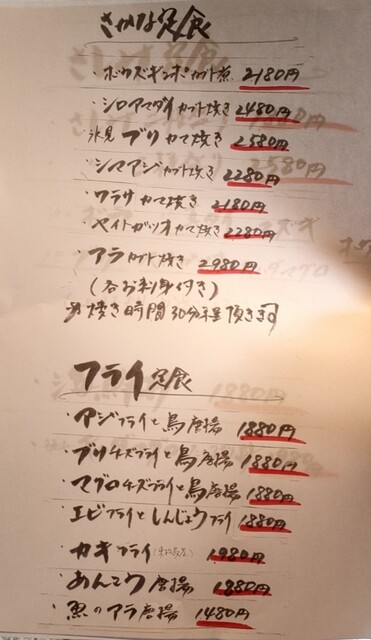 さかな定食
・ボウズギンポカブト煮 2180円
・シロアマダイカブト焼き 2480円
氷見ブリカマ焼き 2580円
・シマアジカブト焼き 2280円
・ワラサカマ焼き 2180円
・ケイトガツオカマ焼き 2280円
・アラカブト焼き 2980円
(各お刺身付き)
焼き時間30分程頂きます
フライ定食
・アジフライと鳥唐揚 1880円
・ブリチーズフライと鳥唐揚 1880円
・マグロチーズフライと鳥唐揚 1880円
・エビフライとしんじょうフライ 1880円
・カキフライ 1980円
・あんこう唐揚 1880円
・魚のアラ唐揚 1480円